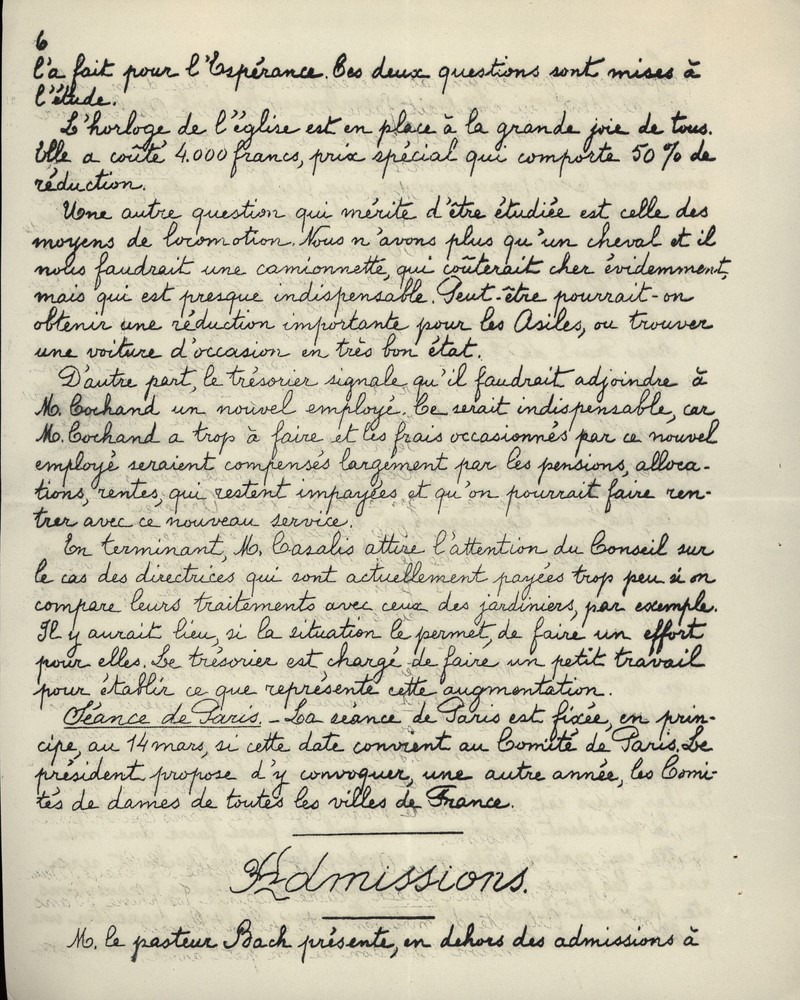 6
l'a fait pour l'Espérance. Ces deux questions sont mises à
l'étude.
L'horloge de l'église est en place à la grande joie de tous.
Elle a coûté 4.000 francs, prix spécial qui comporte 50% de
réduction.
Une autre question qui mérite d'être étudiée est celle des
moyens de locomotion. Nous n'avons plus qu'un cheval et il
nous faudrait une camionnette, qui coûterait cher évidemment,
mais qui est presque indispensable. Peut-être pourrait-on
obtenir une réduction importante pour les Asiles, ou trouver
une voiture d'occasion en très bon état.
D'autre part, le trésorier signale qu'il faudrait adjoindre à
M. Cochand un nouvel employé. Ce serait indispensable, car
M. Cochand a trop à faire et les frais occasionnés par ce nouvel
employé seraient compensés largement par les pensions, alloca-
tions, rentes, qui restent impayées et qu'on pourrait faire ren-
trer avec ce nouveau service.
En terminant, M. Casalis attire l'attention du Conseil sur
le cas des directrices qui sont actuellement payées trop peu si on
compare leurs traitements avec ceux des jardiniers, par exemple.
Il y aurait lieu, si la situation le permet, de faire un effort
pour elles. Le trésorier est chargé de faire un petit travail
pour établir ce que représente cette augmentation.
Séance de Paris. - La séance de Paris est fixée, en prin-
cipe, au 14 mars, si cette date convient au Comité de Paris. Le
président propose d'y convoquer, une autre année, les Comi-
tés de dames de toutes les villes de France.
Admissions.
M. le pasteur Bach présente, en dehors des admissions à